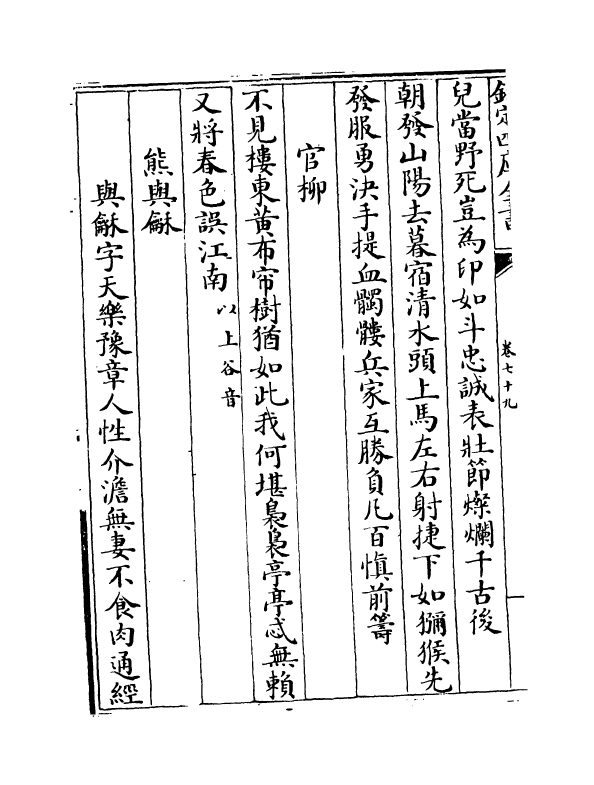 欽定四庫全書
卷七十九
兒當野死豈為印如斗忠誠表壯節燦爛千古後
朝發山陽去暮宿清水頭上馬左右射捷下如獼猴先
發服勇決手提血髑髏兵家互勝負凡百慎前籌
官柳
不見樓東黄布帘樹猶如此我何堪裊裊亭亭忒無賴
又將春色誤江南以上谷音
熊與龢
與龢字天樂豫章人性介澹無妻不食肉通經